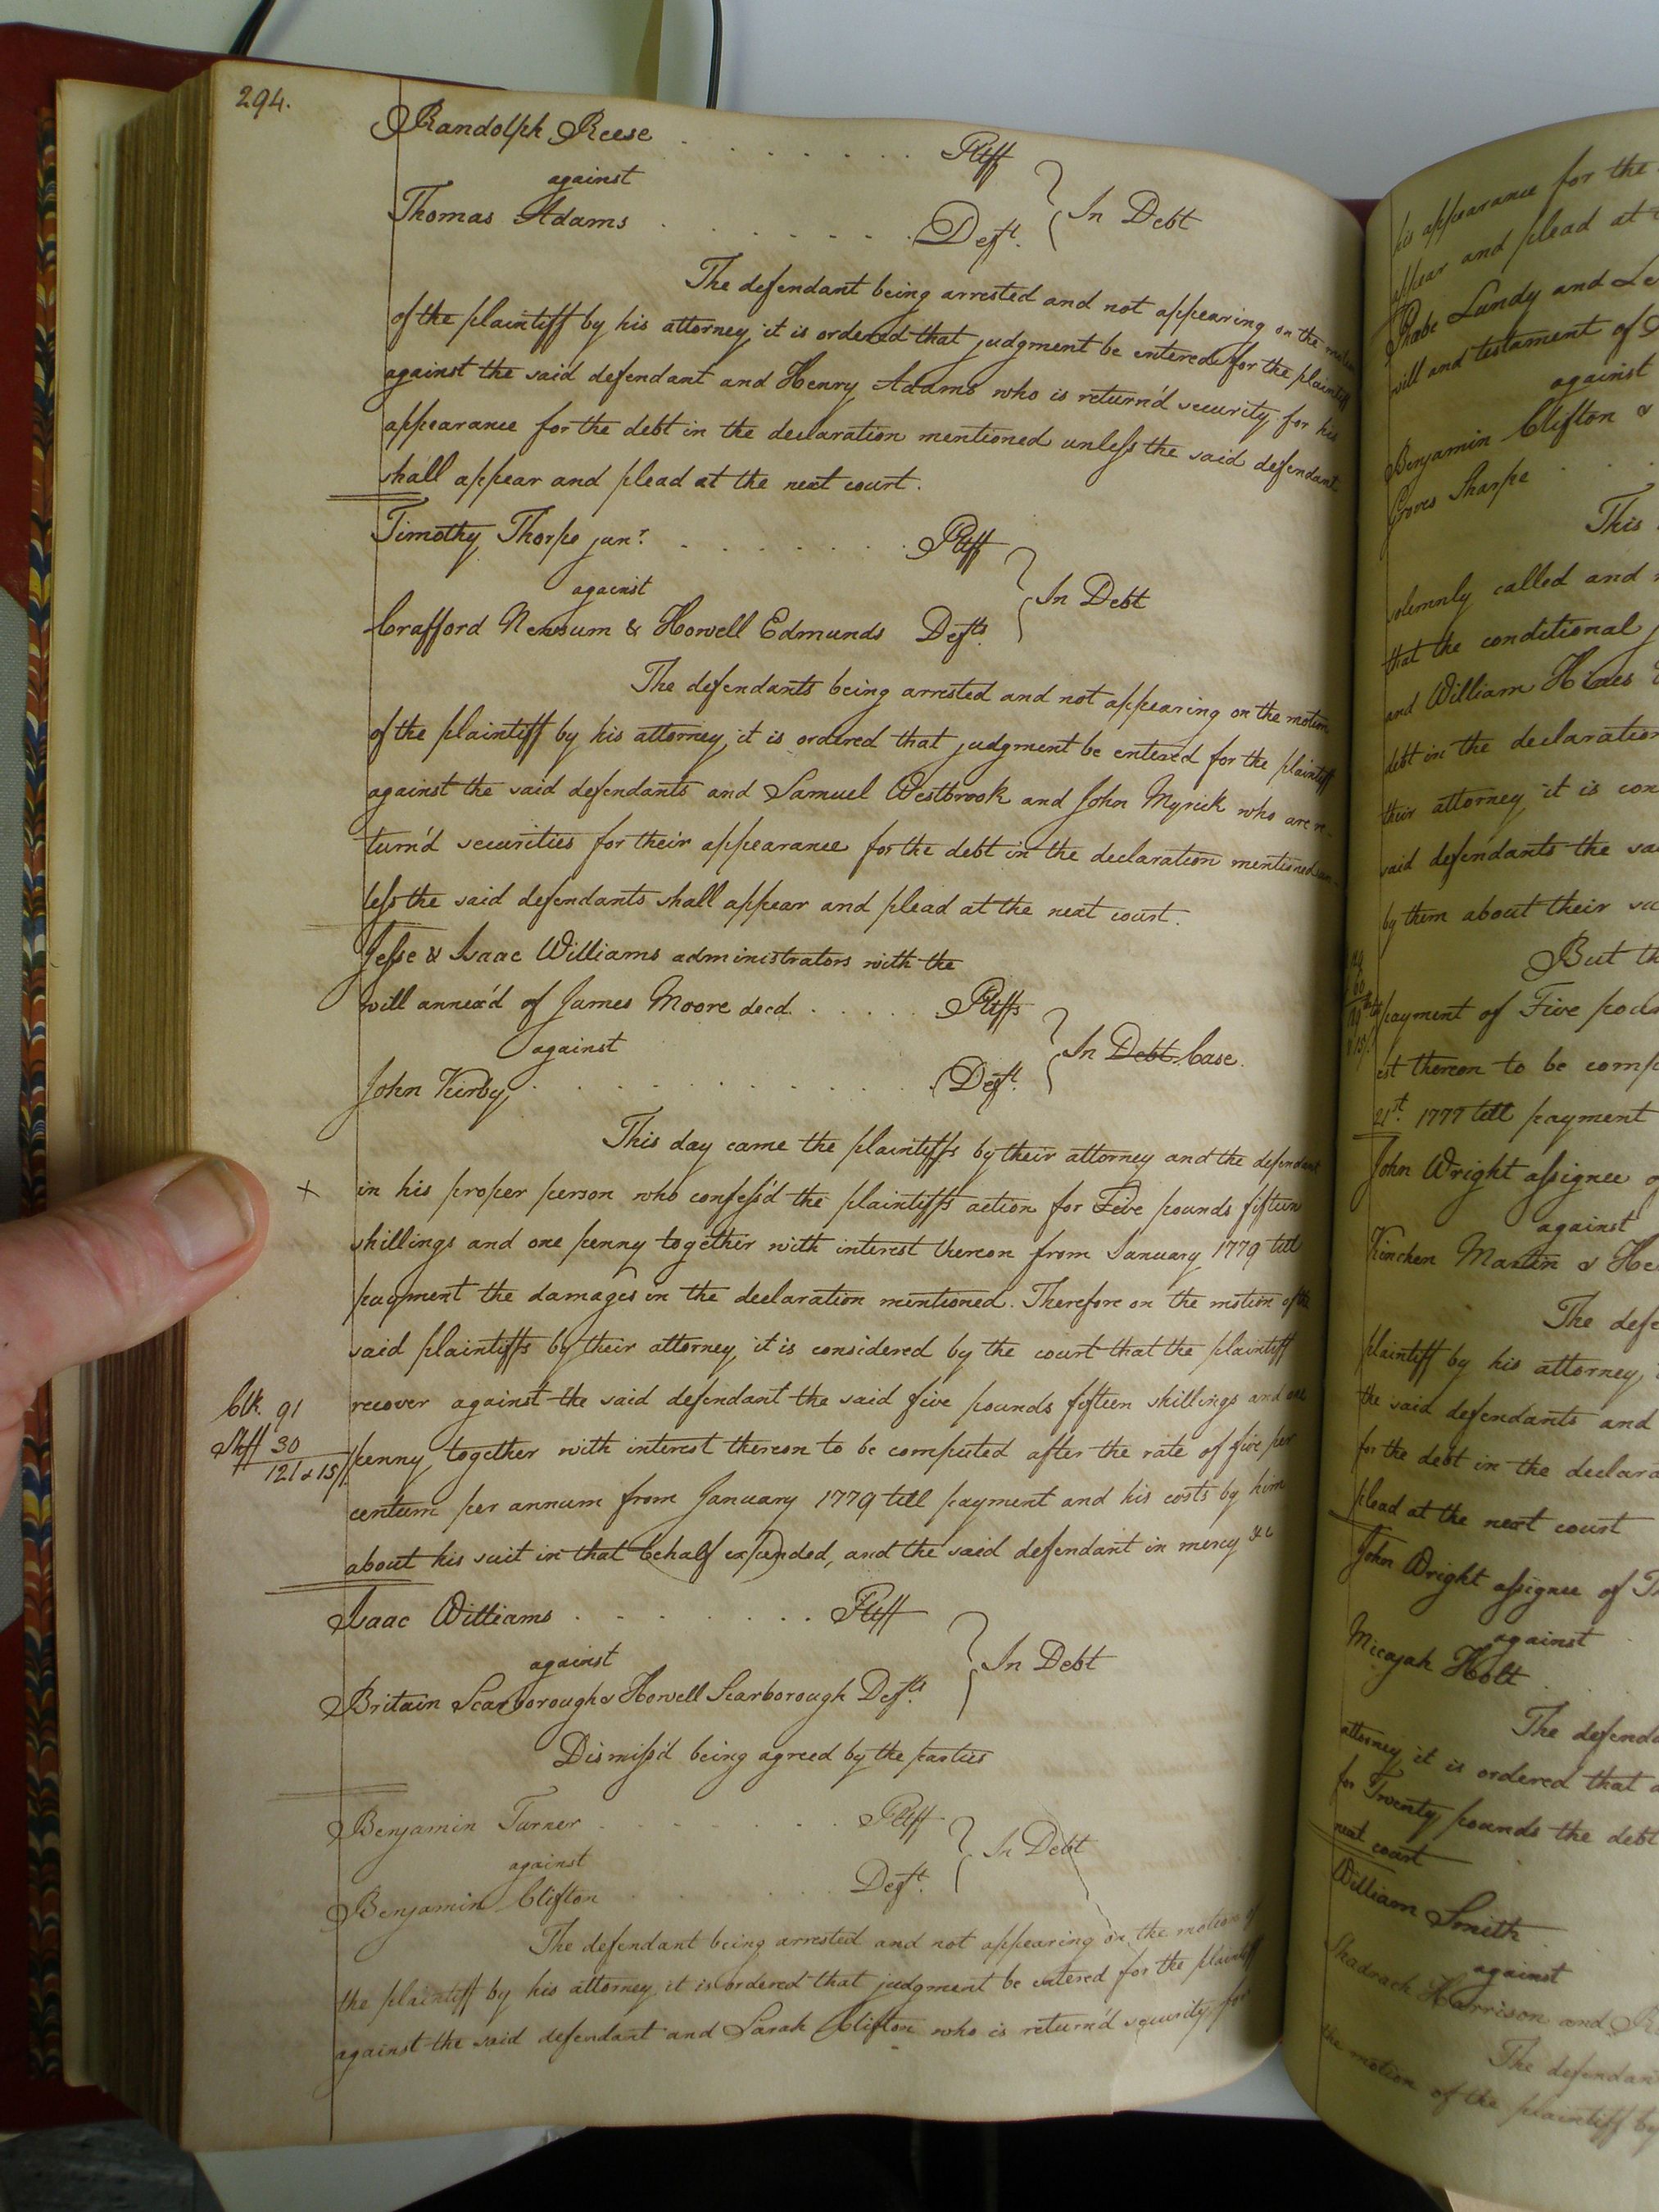 294.
Randolph Reese . . . . . . . . Pltff
against
Thomas Adams . . . . . . . Deft.
In Debt
The defendant being arrested and not appearing on the motion
of the plaintiff by his attorney, it is ordered that judgment be entered for the plaintiff
against the said defendant and Henry Adams who is return'd security for his
appearance for the debt in the declaration mentioned unless the said defendant
shall appear and plead at the next court.
Timothy Thorpe junr. . . . . . . . Pltff
against
Crafford Newsum & Howell Edmunds Defts.
In Debt
The defendants being arrested and not appearing on the motion
of the plaintiff by his attorney, it is ordered that judgment be entered for the plaintiff
against the said defendants and Samuel Westbrook and John Myrick who are re-
turn'd securities for their appearance for the debt in the declaration mentioned un-
less the said defendants shall appear and plead at the next court.
Jesse & Isaac Williams administrators with the
will annex'd of James Moore decd. . . . . . Pltffs
against
John Kirby . . . . . . . . . . . . Deft.
In Debt Case.
This day came the plaintiffs by their attorney and the defendant
+ in his proper person who confess'd the plaintiffs action for Five pounds fifteen
shillings and one penny together with interest thereon from January 1779 till
payment the damages in the declaration mentioned. Therefore on the motion of the
said plaintiffs by their attorney, it is considered by the court that the plaintiff
Clk. 91
Shff 30
121 & 15/.
recover against the said defendant the said five pounds fifteen shillings and one
penny, together with interest thereon to be computed after the rate of five per
centum per annum from January 1779 till payment and his costs by him
about his suit in that behalf expended, and the said defendant in mercy &c
Isaac Williams . . . . . . . . Pltff
against
Britain Scarborough & Howell Scarborough Defts.
In Debt
Dismiss'd being agreed by the parties
Benjamin Turner . . . . . . . . Pltff
against
Benjamin Clifton . . . . . . Deft.
In Debt
The defendant being arrested and not appearing on the motion of
the plaintiff by his attorney it is ordered that judgment be entered for the plaintiff
against the said defendant and Sarah Clifton who is return'd security for
his appearance for the
appear and plead at
Phabe Lundy and
will and testament of
against
Benjamin Clifton &
Groves Sharpe . . .
This
solemnly called and
that the conditional
and William Hines
debt in the declaration
their attorney, it is
said defendants the
by them about their
But
payment of Five
est thereon to be
21st. 1777 till payment
John Wright assignee
against
Kinchen Martin &
The
plaintiff by his attorney,
the said defendants and
for the debt in the
plead at the next court
John Wright assignee of
against
Micajah Holt
The
attorney it is ordered that
for Twenty pounds the debt
next court
William Smith
against
Shadrach Harrison and
The
the motion of the plaintiff by